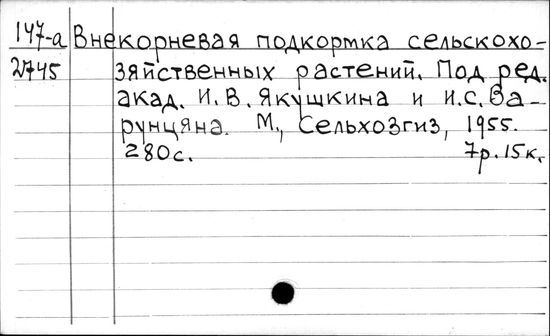 147-а Внекорневая подкормка сельскохо-
2745 зяйственных растений. Под ред.
акад. И.В. Якушкина и И.С. Ва-
рунцяна. М., Сельхозгиз, 1955.
280с. 7р.15к.